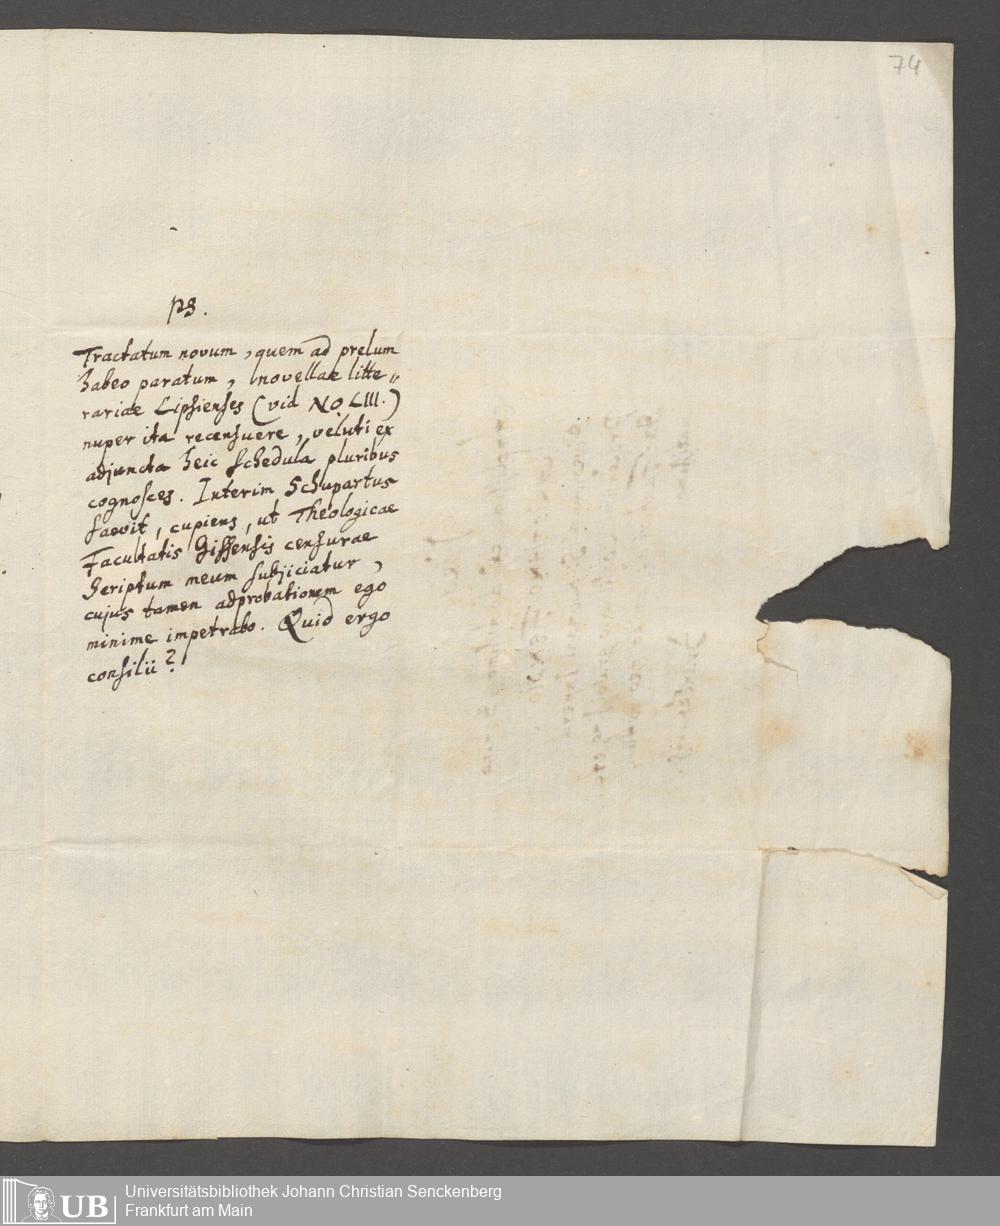 74
PS.
Tractatum novum, quem ad prelum
habeo paratum, novellae litte„
rariae Lipsienses (vid NO LIII.)
nuper ita recensuere, veluti ex
adjuncta heic schedula pluribus
cognosces. Interim Schupartus
saevit, cupiens, ut Theologicae
Facultatis Gissensis censurae
scriptum meum subjiciatur,
cujus tamen adprobationem ego
minime impetrabo. Quid ergo
consilii?
UB
Universitätsbibliothek Johann Christian Senckenberg
Frankfurt am Main